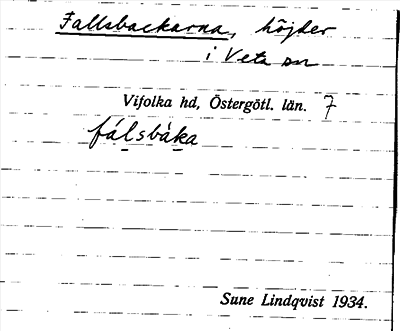 Fallsbackarna, höjder
i Veta sn
Vifolka hd, Östergötl. län. 7
fálsbàka
Sune Lindqvist 1934.